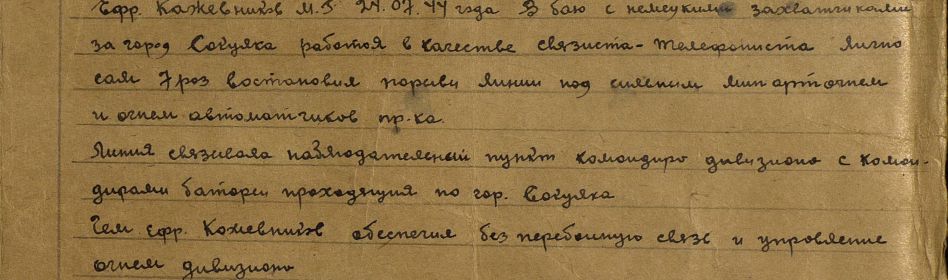 Ефр. Кожевников М.Г 24.07.44 года В бою с немецкими захватчиками
за город Сокулка работая в качестве связиста-телефониста лично
сам 7 раз востановил порывы линии под сильным мин арт огнем
и огнем автоматчиков пр-ка.
Линия связывала наблюдательный пункт командира дивизиона с коман-
дирами батареи проходящия по гор. Сокулка
Чем ефр. Кожевников обеспечил без перебойную связь и управление
огнем дивизиона